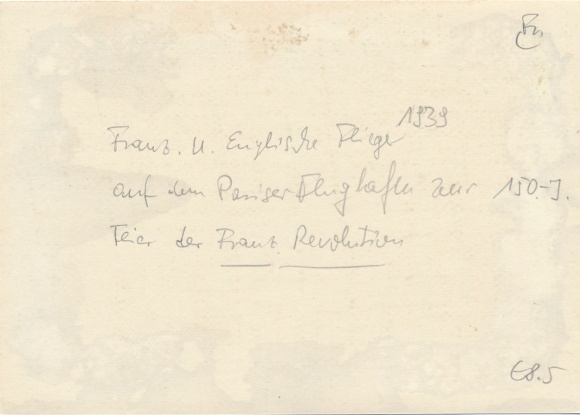 Fr.
1939
Franz. u. Englische Flieger
auf dem Pariser Flughafen zur 150.-J.
Feier der Franz. Revolution
€8.5